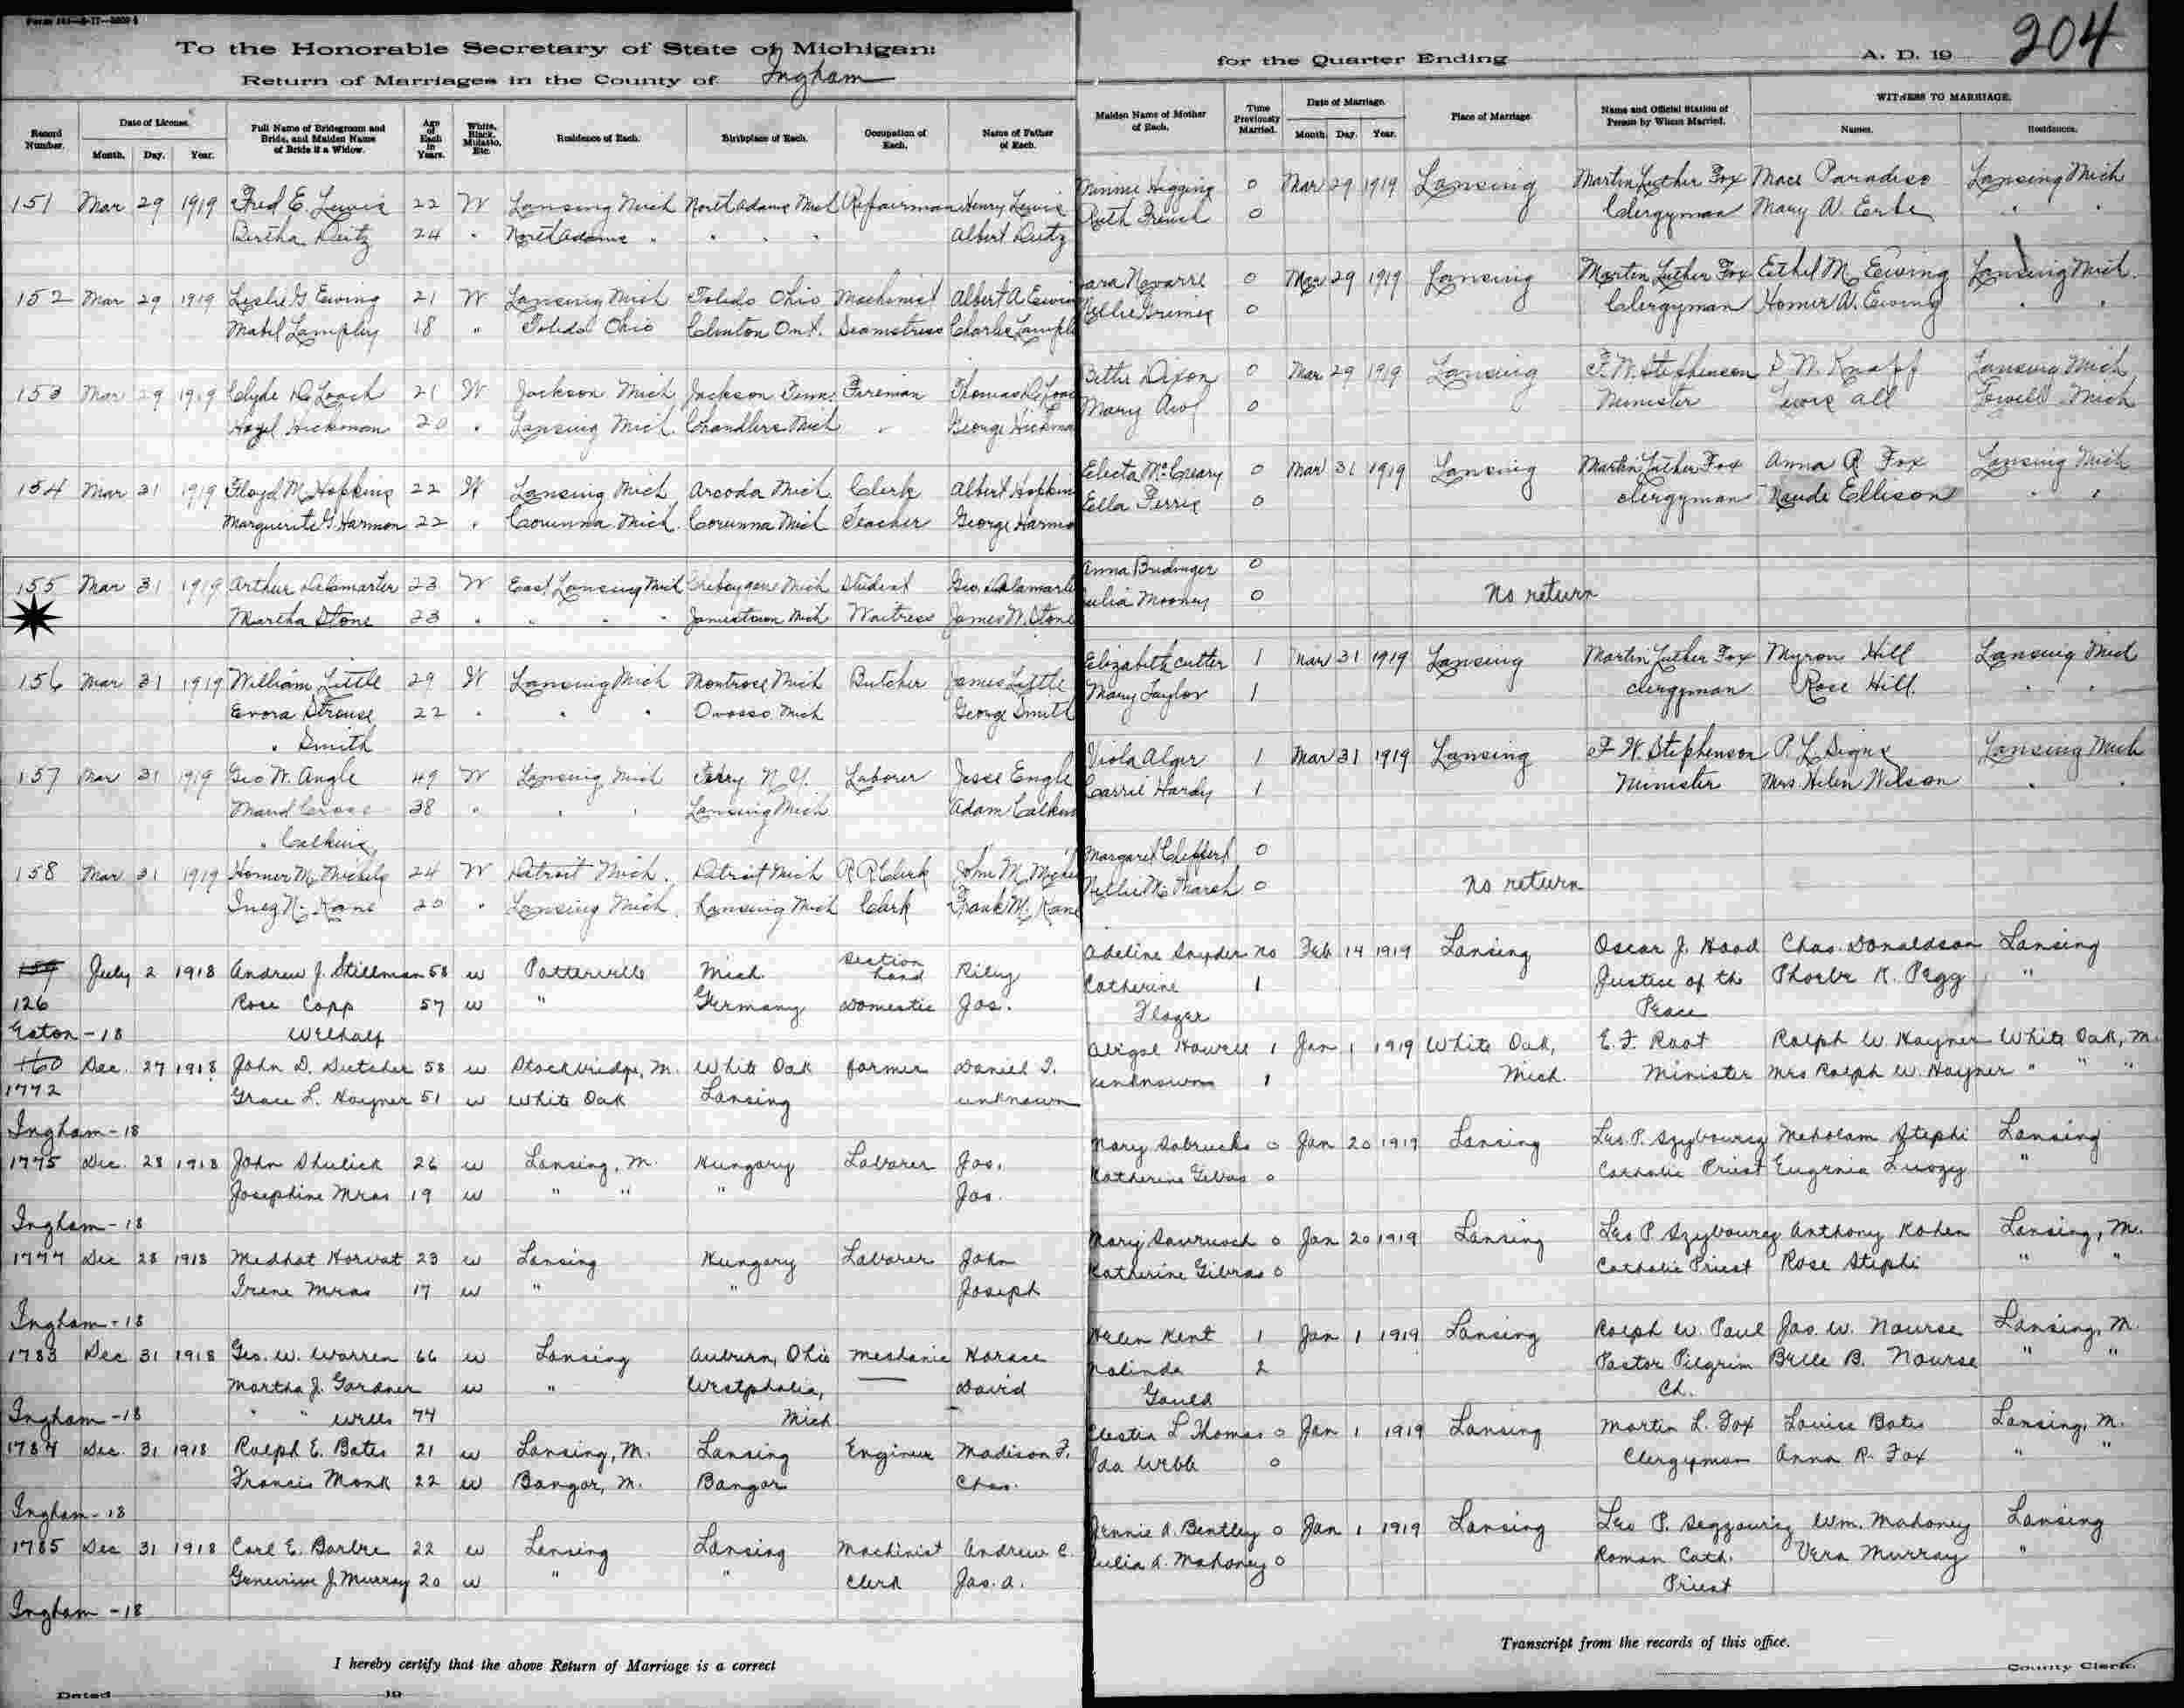 Form 151—8-17—2000
To the Honorable Secretary of State of Michigan:
Return of Marriages in the County of Ingham
for the Quarter Ending A. D. 19
204
Record Number.
Date of License.
Month. Day. Year.
Full Name of Bridegroom and Bride, and Maiden Name of Bride if a Widow.
Age of Each in Years.
White, Black, Mulatto, Etc.
Residence of Each.
Birthplace of Each.
Occupation of Each.
Name of Father of Each.
Maiden Name of Mother of Each.
Time Previously Married.
Date of Marriage.
Month. Day. Year.
Place of Marriage
Name and Official Station of Person by Whom Married.
WITNESS TO MARRIAGE.
Names. Residences.
151 Mar 29 1919 Fred E. Lewis 22 W Lansing Mich North Adams Mich Repairman Henry Lewis Minnie Higgins 0 Mar 29 1919 Lansing Martin Luther Fox Mace Paradise Lansing Mich
Bertha Deitz 24 " North Adams " " " " Albert Deitz Ruth French 0 Clergyman Mary A. Erbe " "
152 Mar 29 1919 Leslie G. Ewing 21 W Lansing Mich Toledo Ohio Machinist Albert A Ewin Navarre 0 Mar 29 1919 Lansing Martin Luther Fox Ethel M Ewing Lansing Mich.
Mabel Lampley 18 " Toledo Ohio Clinton Ont. Seamstress Charles Lampl Nellie Grimes 0 Clergyman Homer A. Ewing " "
153 Mar 29 1919 Clyde DeLoach 21 W Jackson Mich Jackson Tenn. Fireman Thomas DeLoac Bettie Dixon 0 Mar 29 1919 Lansing F. W. Stephenson Knapp Lansing Mich
Hazel Hickman 20 " Lansing Mich. Chandlers Mich " George Hickma Mary 0 Minister Lowell Mich
154 Mar 31 1919 Floyd M. Hopkins 22 W Lansing Mich Arcoda Mich. Clerk Albert Hopkin Electa McCreary 0 Mar 31 1919 Lansing Martin Luther Fox Anna R Fox Lansing Mich
Marguerite G. Harmon 22 " Corunna Mich. Corunna Mich Teacher George Harmo Ella Perris 0 clergyman Naude Ellison " "
155 Mar 31 1919 Arthur Delamarter 23 W East Lansing Mich Cheboygan Mich Student Geo. Delamart Anna Bridinger 0 no return
Martha Stone 23 " " " " Jamestown Mich Waitress James W. Stone Julia Mooney 0
156 Mar 31 1919 William Little 29 W Lansing Mich Montrose Mich Butcher James Little Elizabeth Cutter 1 Mar 31 1919 Lansing Martin Luther Fox Myron Hill Lansing Mich
Evora Strouse 22 " " " Owosso Mich George Smith Mary Taylor 1 clergyman Rose Hill. " "
" Smith
157 Mar 31 1919 Geo W. Angle 49 W Lansing Mich Perry N. Y. Laborer Jesse Engle Viola Alger 1 Mar 31 1919 Lansing F W. Stephenson P. L. Signs Lansing Mich
Maud Cross 38 " " " Lansing Mich Adam Calkin Carrie Hardy 1 Minister Mrs. Helen Wilson " "
" Calkins
158 Mar 31 1919 Homer M. Michels 24 W Detroit Mich. Detroit Mich R R Clerk John M. Miche Margaret Cheffert 0 no return
Inez N. Kane 20 " Lansing Mich. Lansing Mich Clerk Frank M. Kane Nellie M. Marsh 0
159 July 2 1918 Andrew J. Stillman 58 w Potterville Mich. Section hand Riley Adeline Snyder no Feb 14 1919 Lansing Oscar J. Hood Chas. Donaldson Lansing
126 Rose Copp 57 w " Germany Domestic Jos. Catherine 1 Justice of the Phoebe K. Pegg "
Eaton - 18 Welhalf Flager Peace
160 Dec. 27 1918 John D. Dutcher 58 w Stockbridge, M. White Oak farmer Daniel D. Abigal Howell 1 Jan 1 1919 White Oak, E. F. Root Ralph W Hayner White Oak, M.
1772 Grace L. Hayner 51 w White Oak Lansing unknown unknown 1 Mich. Minister Mrs Ralph W. Hayner " " "
Ingham - 18
1775 Dec. 28 1918 John Shulick 26 w Lansing, M. Hungary Laborer Jos. Mary Sabrucks 0 Jan 20 1919 Lansing Leo. P. Szybourg Meholam Stephi Lansing
Josephine Mras 19 w " " " Jos. Katherine Gibas 0 Catholic Priest Eugenia "
Ingham - 18
1777 Dec 28 1918 Medhat Horvat 23 w Lansing Hungary Laborer John Mary Savrusch 0 Jan 20 1919 Lansing Leo P. Szybourg Anthony Kohen Lansing, M.
Irene Mras 17 w " " Joseph Katherine Gibras 0 Catholic Priest Rose Stephi " "
Ingham - 18
1783 Dec 31 1918 Geo. W. Warren 66 w Lansing Auburn, Ohio Mechanic Horace Helen Kent 1 Jan 1 1919 Lansing Ralph W. Paul Jas. W. Nourse Lansing, M.
Martha J. Gardner w " Westphalia, — David Malinda 2 Pastor Pilgrim Belle B. Nourse " "
Ingham - 18 " " Wells 74 Mich Gould Ch.
1784 Dec. 31 1918 Ralph E. Bates 21 w Lansing, M. Lansing Engineer Madison F. Clestia L Thomas 0 Jan 1 1919 Lansing Martin L. Fox Louise Bates Lansing, M.
Francis Monk 22 w Bangor, M. Bangor Chas. Ida Webb 0 Clergyman Anna R. Fox " "
Ingham - 18
1785 Dec 31 1918 Carl E. Barbre 22 w Lansing Lansing Machinist Andrew C. Jennie A. Bentley 0 Jan 1 1919 Lansing Leo P. Wm. Mahoney Lansing
Genevieve J. Murray 20 w " " Clerk Jas. A. Julia A. Mahoney 0 Roman Cath. Vera Murray "
Ingham - 18 Priest
I hereby certify that the above Return of Marriage is a correct
Transcript from the records of this office.
Dated 19
County Clerk.